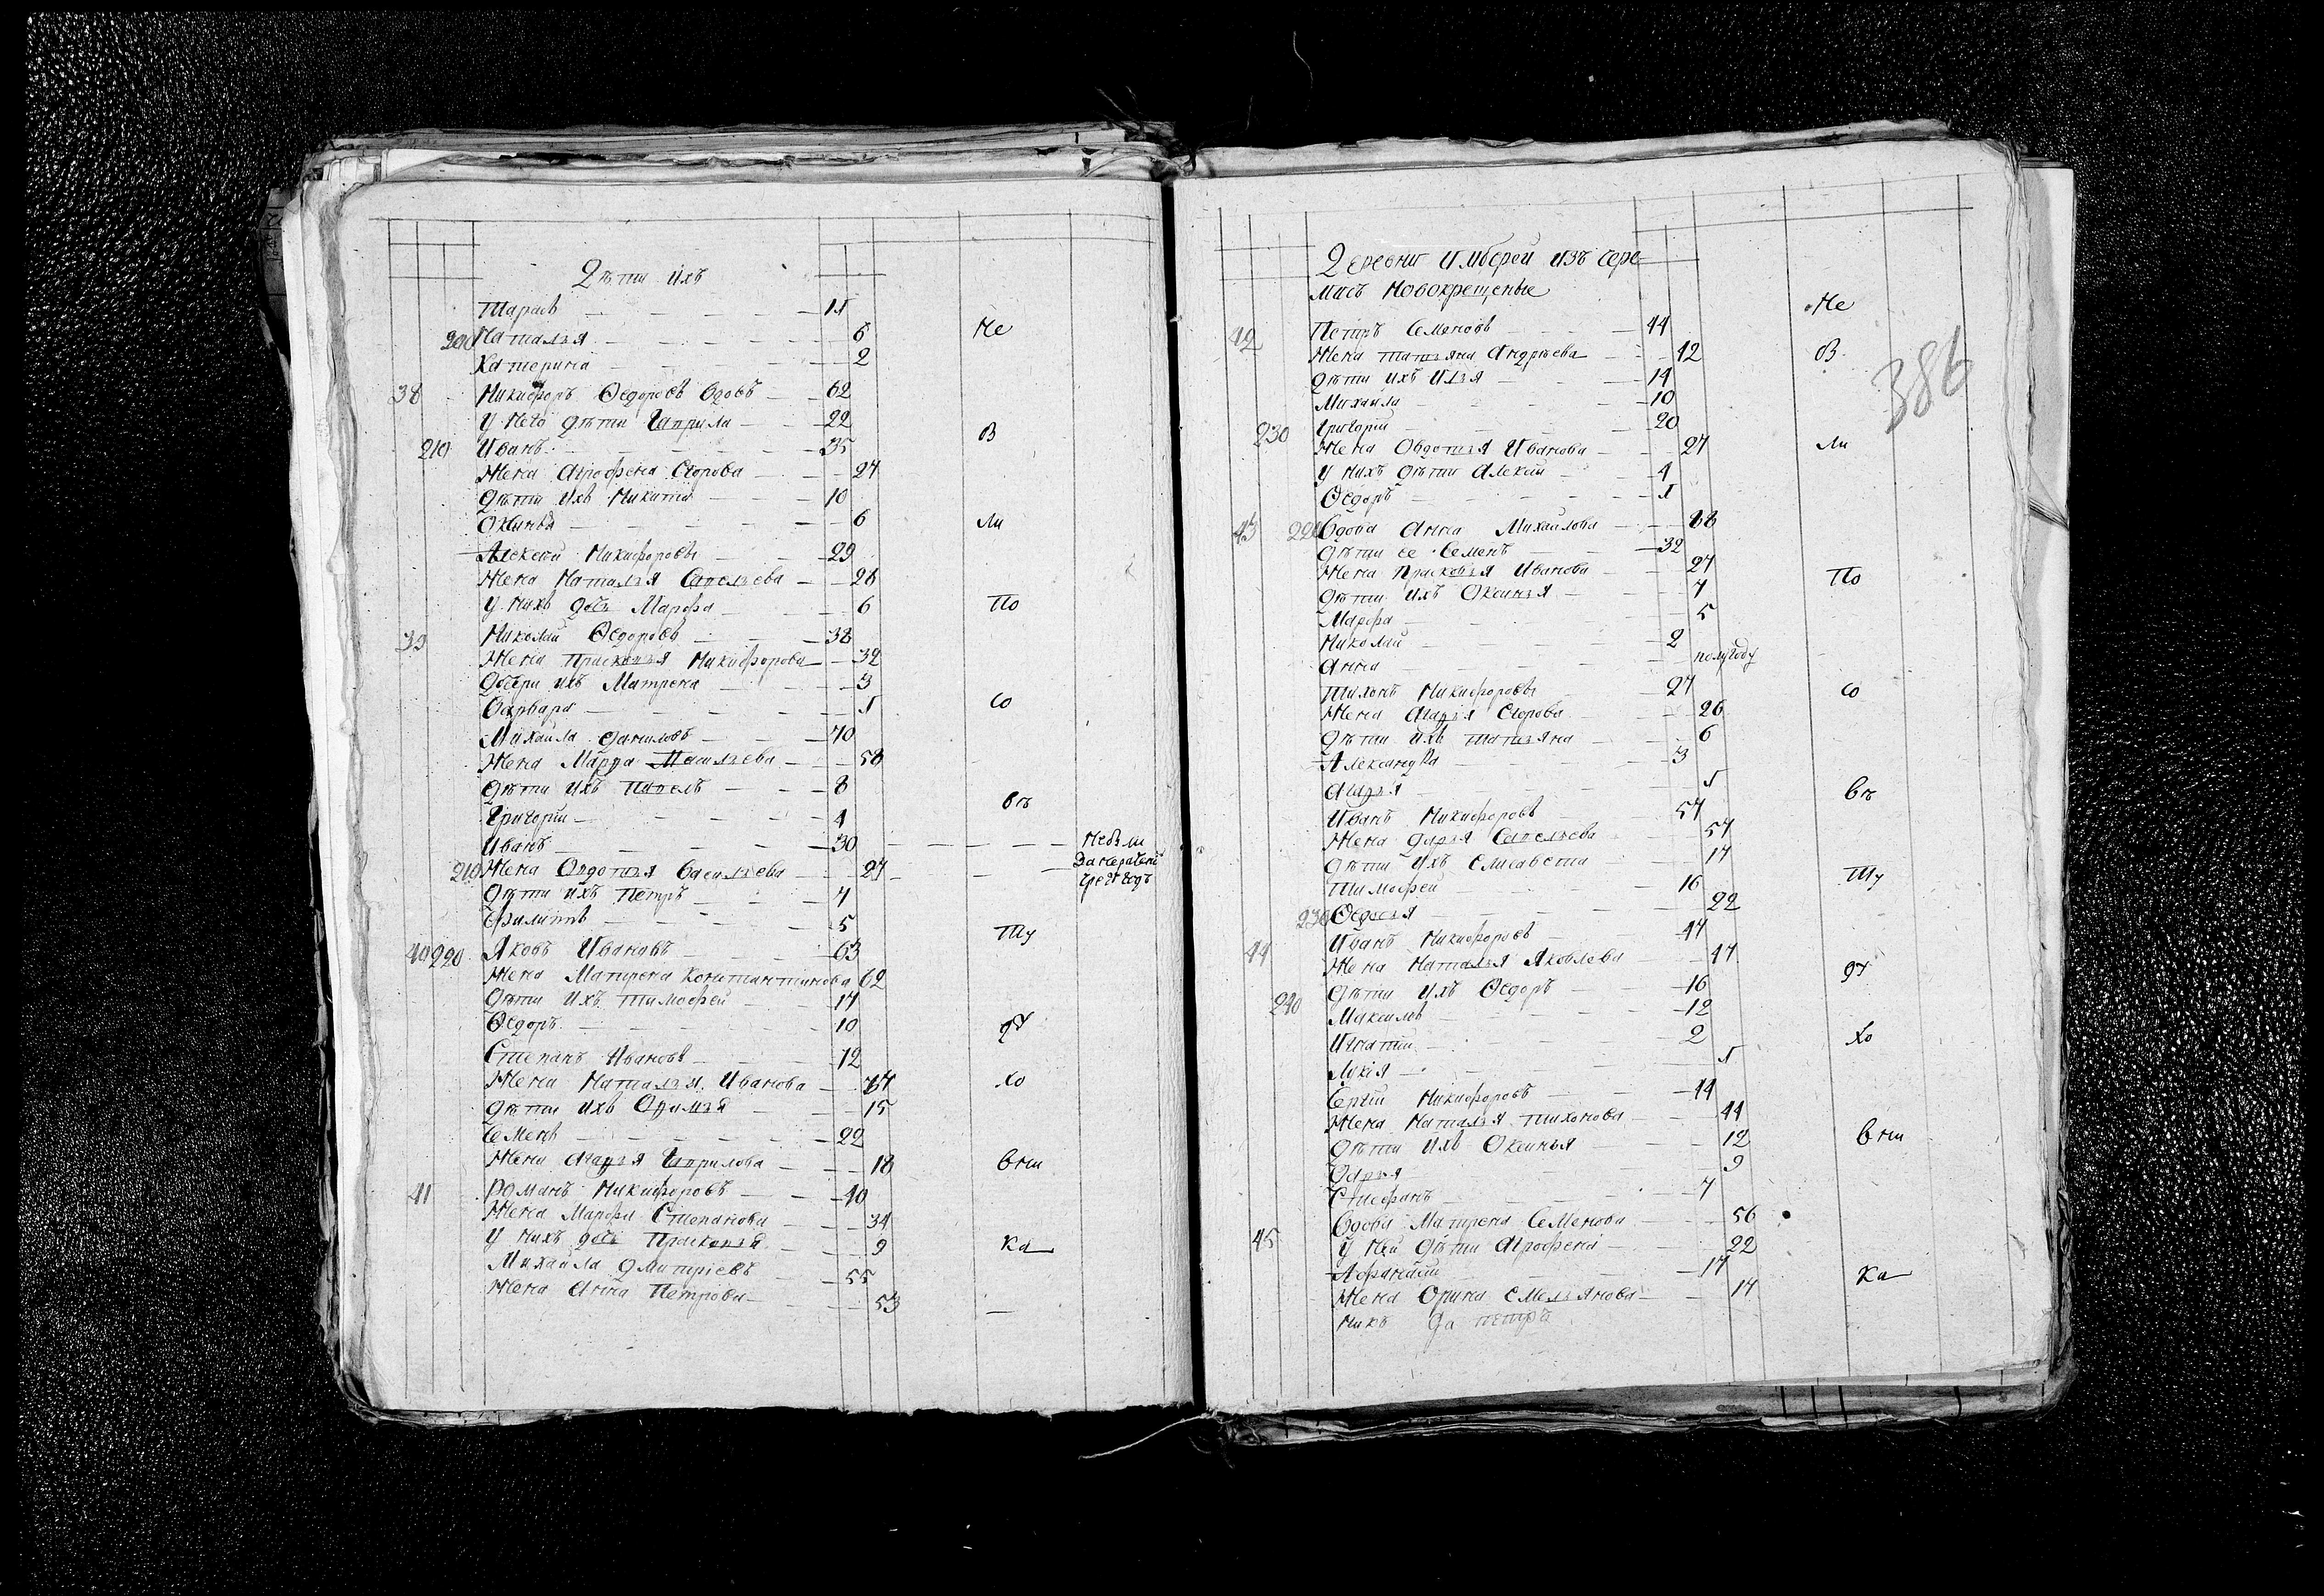 Дѣти ихъ
Тарасъ 11
200 Наталья 6
Катерина 2
Не
38 Никифоръ Ѳедоровъ вдовъ 62
у него дѣти Гаврила 22
210 Иванъ 35
В
Жена Агрофена Егорова 27
Дѣти ихъ Никита 10
Оксинья 6
ли
Алексей Никифоровъ 29
Жена Наталья Савельева 26
у нихъ дочь Марфа 6
По
39 Николай Ѳедоровъ 38
Жена Прасковья Никифорова 32
Дочери ихъ Матрена 3
Варвара 1
со
Михаила Даниловъ 70
Жена Марфа Васильева 58
Дѣти ихъ Павелъ 8
Григорий 4
въ
Иванъ 30
210 Жена Овдотья Васильева 27
Дѣти ихъ Петръ 7
Филиппъ 5
Ту
40 220 Яковъ Ивановъ 63
Жена Матрена Константинова 62
Дѣти ихъ Тимофей 17
Ѳедоръ 10
Степанъ Ивановъ 12
Жена Наталья Иванова 37
Хо
Дѣти ихъ Офимья 15
Семенъ 22
Жена Агафья Гаврилова 18
вни
41 Романъ Никифоровъ 40
Жена Марфа Степанова 34
у нихъ дочь Прасковья 9
ка
Михайла Дмитріевъ 55
Жена Анна Петрова 53
Деревни Имберей изъ чере
мисъ Новокрещеные
386
42 Петръ Семеновъ 44
Не
Жена Татьяна Андрѣева 42
В
Дѣти ихъ Илья 14
Михаила 10
230 Григорий 20
Жена Овдотья Иванова 27
ли
у нихъ дѣти Алексей 4
Ѳедоръ 1
43 220 Вдова Анна Михайлова 88
Дѣти ее Семенъ 32
Жена Прасковья Иванова 27
По
Дѣти ихъ Оксинья 7
Марфа 5
Николай 2
Анна полугоду
Тихонъ Никифоровъ 27
со
Жена Агафья Егорова 26
Дѣти ихъ Татьяна 6
Александра 3
Агафья 1
въ
Иванъ Никифоровъ 57
Жена Дарья Савельева 57
Дѣти ихъ Елисавета 17
Тимофей 16
Ту
230 Ѳедосья 22
44 Иванъ Никифоровъ 47
Жена Наталья Яковлева 47
Дѣти ихъ Ѳедоръ 16
240 Максимъ 12
Игнатий 2
Хо
Лукія 1
Сергій Никифоровъ 44
Жена Наталья Тихонова 44
Дѣти ихъ Оксинья 12
вни
Дарья 9
Стефанъ 7
45 Вдова Матрена Семенова 56
у ней дѣти Агрофена 22
Афанасий 17
ка
Жена Орина Емельянова 17
нихъ да Петръ